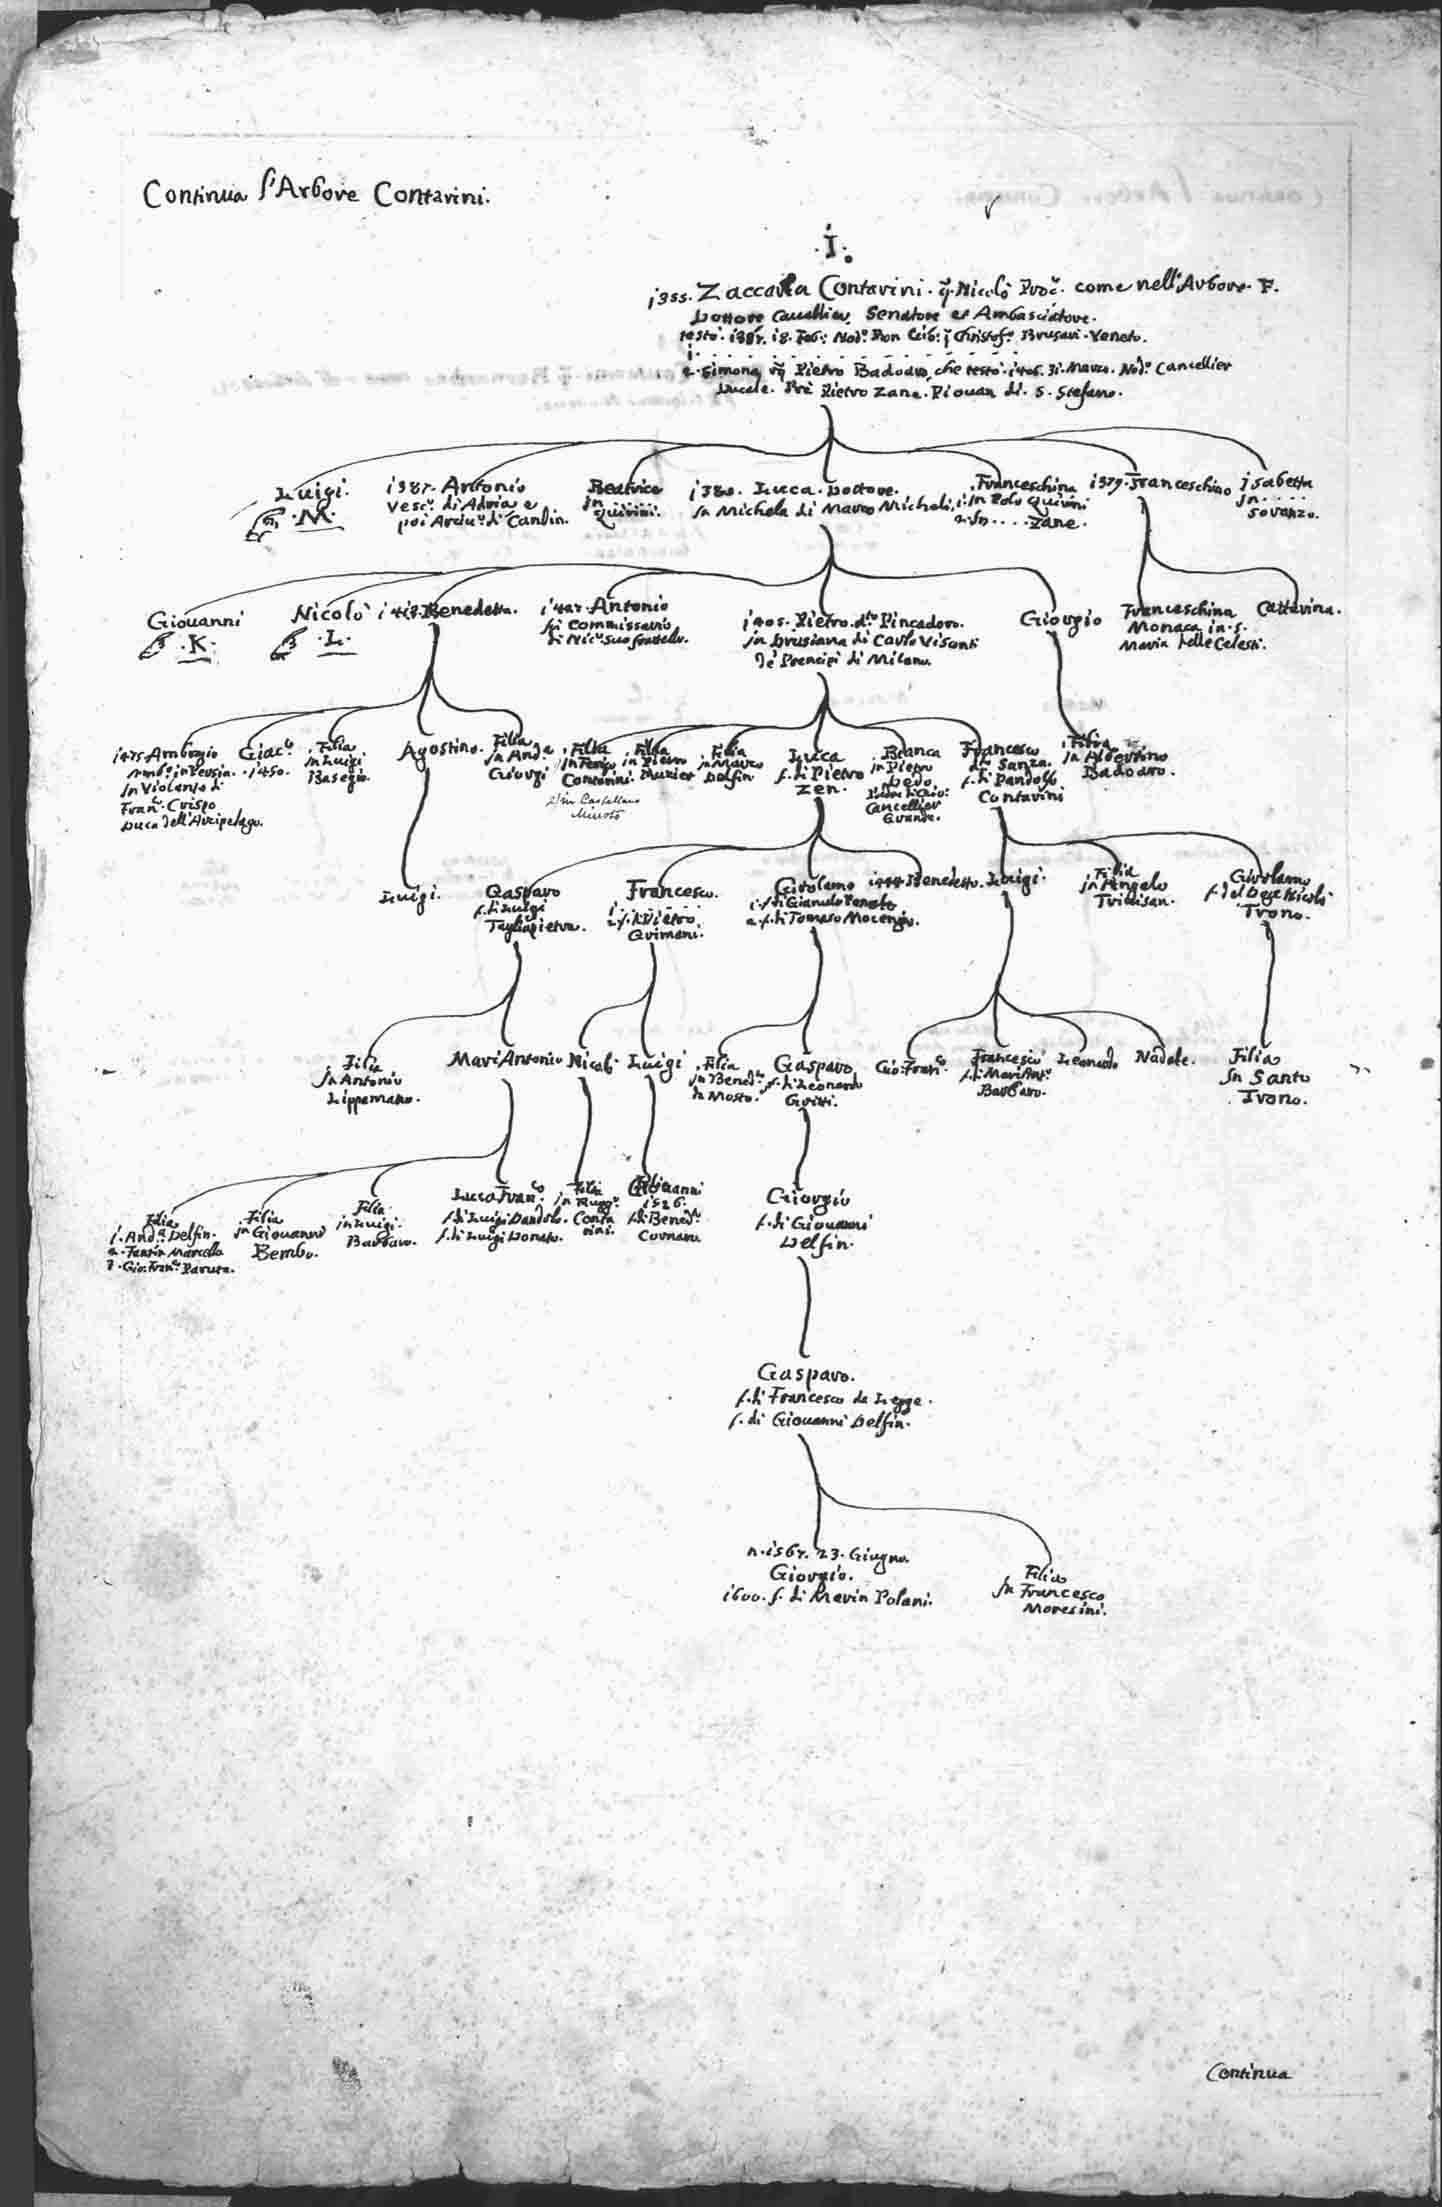 Continua l'Arbore Contarini.
.I.
1355. Zaccaria Contarini. q. Nicolò Proc.r come nell'Arbore. F.
Dottore Cavallier, Senatore et Ambasciatore.
testò. 18. Feb: Nod.o Christof.o Brusari. Veneto.
1. . . . . . . . . .
2. Simona q. Pietro Badoaro, che testò. 1405. 31. Marzo. Nod.o Cancellier
Ducale. Prè Pietro Zane. Piovan di. S. Stefano.
Luigi.
.M.
1387. Antonio
Vesc.o di Adria e
poi di Candia.
Beatrice
in
Quirini.
1380. Luca. Dottore.
In Michela di Marco Micheli.
Franceschina
1. In Polo Quirini
2. In . . . . Zane.
1379. Franceschino
Isabetta
in . . . .
Soranzo.
Giovanni
.K.
Nicolò
.L.
Benedetto.
1427. Antonio
fu Commissario
di Nic.o suo fratello.
1405. Pietro. d.to Pincadoro.
in Drusiana di Carlo Visconti
de' Prencipi di Milano.
Giorgio
Franceschina
Monaca in. S.
Maria delle Celesti.
Cattarina.
1475. Ambrogio
Amb.r in Persia.
In Violante di
Fran.o Crispo
Duca dell'Arcipelago.
Giac.o
1450.
Filia
in Luigi
Basegio.
Agostino.
Filia
in And.a
Giorgi
Filia
in
Contarini.
2. in Castellano
Minotto
Filia
in Pietro
Muzier
Filia
in Marco
Delfin
Luca
f. di Pietro
Zen.
Bianca
in Pietro
Dedo
Cancellier
Grande.
Francesco
da Sanza.
f. di Pandolfo
Contarini
Filia
in Albertino
Badoaro.
Luigi.
Gasparo
f. di Luigi
Tagliapietra.
Francesco.
1. . . . . .
2. f. di Pietro
Grimani.
Girolamo
1. f. di
2. f. di Tomaso Mocenigo.
Benedetto.
Luigi.
Filia
in Angelo
Trivisan.
Girolamo
f. del Doge Nicolò
Trono.
Filia
In Antonio
Lippomano.
Marc'Antonio
Nicolò
Luigi
Filia
in Bened.o
da Mosto.
Gasparo
f. di Leonardo
Gritti.
Gio: Fran.co
Francesco
f. di Marc'Ant.o
Barbaro.
Leonardo
Nadale.
Filia
In Santo
Trono.
Filia
1. And.a Delfin.
2. Fantin Marcello
3. Gio: Fran.o Paruta.
Filia
in Giovanni
Bembo.
Filia
in Luigi.
Barbaro.
Luca Fran.co
f. di Luigi Dandolo.
f. di Luigi Donato.
Filia
in Rugg.o
Conta
rini.
Giovanni
1526.
f. di Bened.o
Cornaro.
Giorgio
f. di Giovanni
Delfin.
Gasparo.
f. di Francesco da Legge.
f. di Giovanni Delfin.
n. 1567. 23. Giugno
Giorgio.
1600. f. di Marin Polani.
Filia
In Francesco
Moresini.
Continua